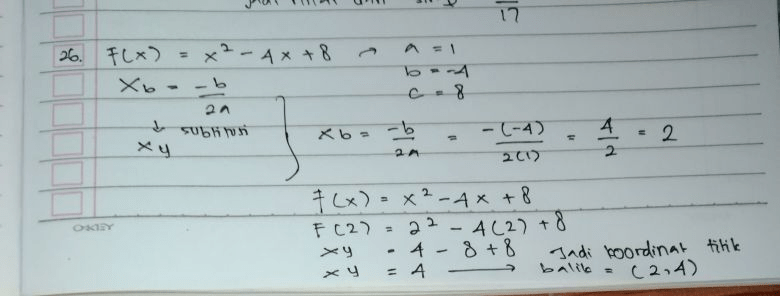 17
26. F(x) = x² - 4x + 8 → a = 1
b = -4
c = 8
Xb = -b/2a
↓ subtitusi
xy
xb = -b/2a = -(-4)/2(1) = 4/2 = 2
f(x) = x² - 4x + 8
F(2) = 2² - 4(2) + 8
xy = 4 - 8 + 8 Jadi koordinat titik
xy = 4 → balik = (2,4)
OKEY